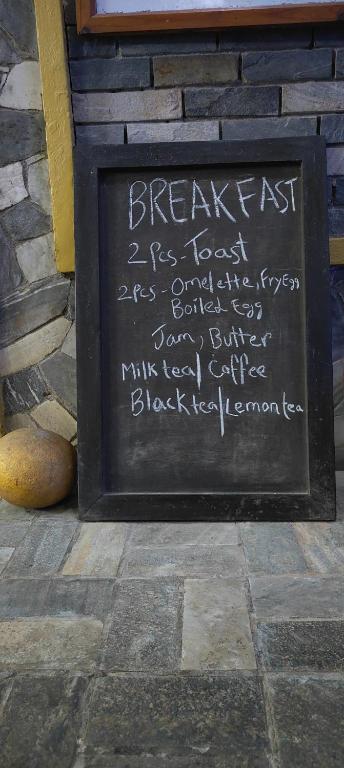 BREAKFAST
2 Pcs - Toast
2 Pcs - Omelette, Fry Egg
Boiled Egg
Jam, Butter
Milk tea / Coffee
Black tea / Lemon tea